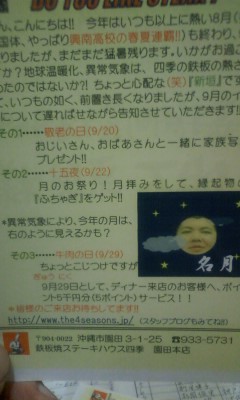 DO YOU LIKE STEAK?
ん、こんにちは!! 今年はいつも以上に熱い8月(
国体、やっぱり興南高校の春夏連覇!!)も終わり、
りましたが、まだまだ猛暑残ります。いかがお過ご
か？地球温暖化、異常気象は、四季の鉄板の熱さ
ったのではないか？ちょっと心配な(笑)『新垣』です
て、いつもの如く、前置き長くなりましたが、9月のイ
について遅ればせながら告知させていただきます!!
その1……敬老の日(9/20)
おじいさん、おばあさんと一緒に家族写
プレゼント!!
その2……十五夜(9/22)
月のお祭り！月拝みをして、縁起物
『ふちゃぎ』をゲット!!
*異常気象により、今年の月は、
右のように見えるかも？
名月
その3……牛肉の日(9/29)
ぎゅう にく
ちょっとこじつけですが
9月29日として、ディナー来店のお客様へ、ポイ
ント5千円分(5ポイント)サービス！！
*皆様のご来店お待ちしてます!!
http://www.the4seasons.jp/ (スタッフブログもみてね!!
〒904-0022 沖縄市園田 3-1-25 ☎933-5731
鉄板焼ステーキハウス四季 園田本店